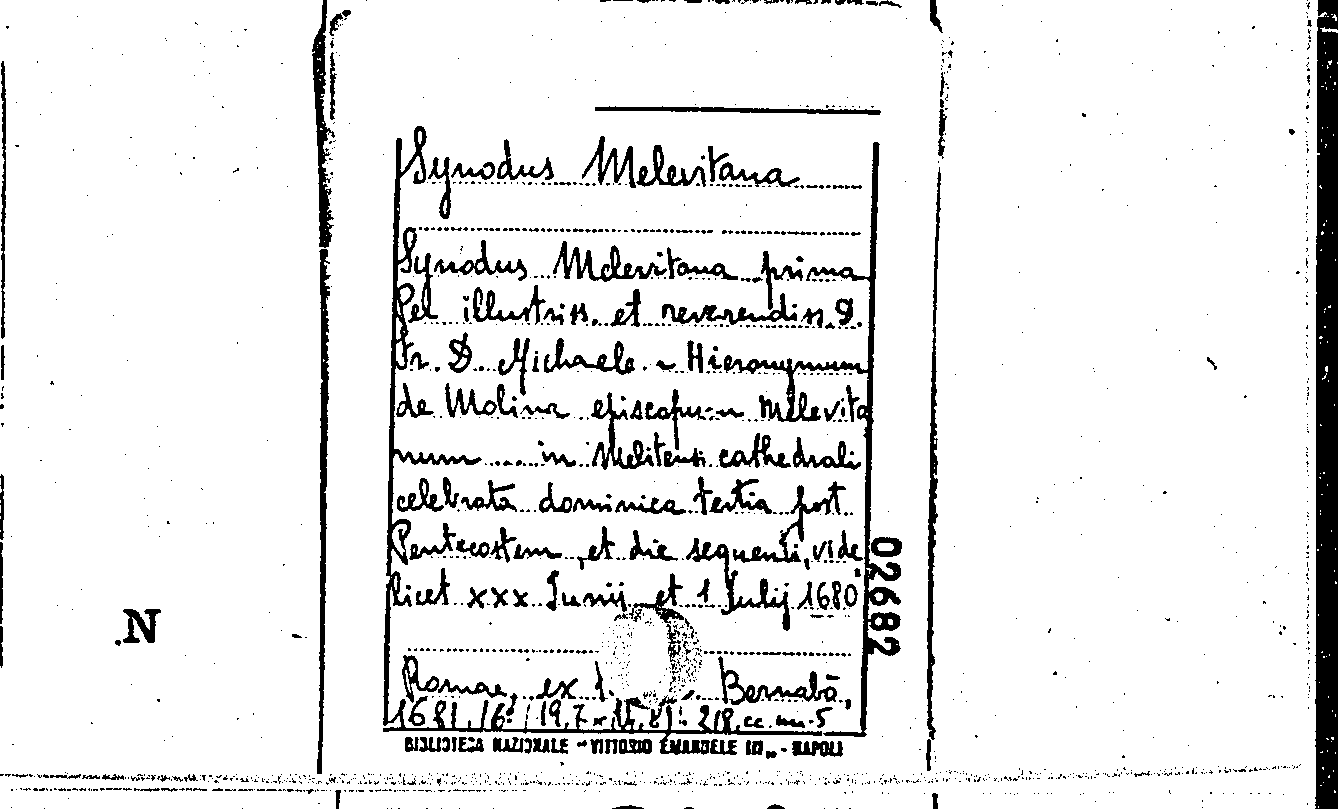 Synodus Melevitana
Synodus Melevitana prima
Per illustriss. et reverendiss. D.
Fr. D. Michaele. Hieronymum
de Molina episcopum Milevita
num .... in Melitensi cathedrali
celebrata dominica tertia post
Pentecostem, et die sequenti, vide
licet xxx Junij et 1 Julij 1680
Romae, ex Bernabò,
1681. 16° (19,7 x 218, cc. nn. 5
BIBLIOTECA NAZIONALE "VITTORIO EMANUELE III" - NAPOLI
02682
N